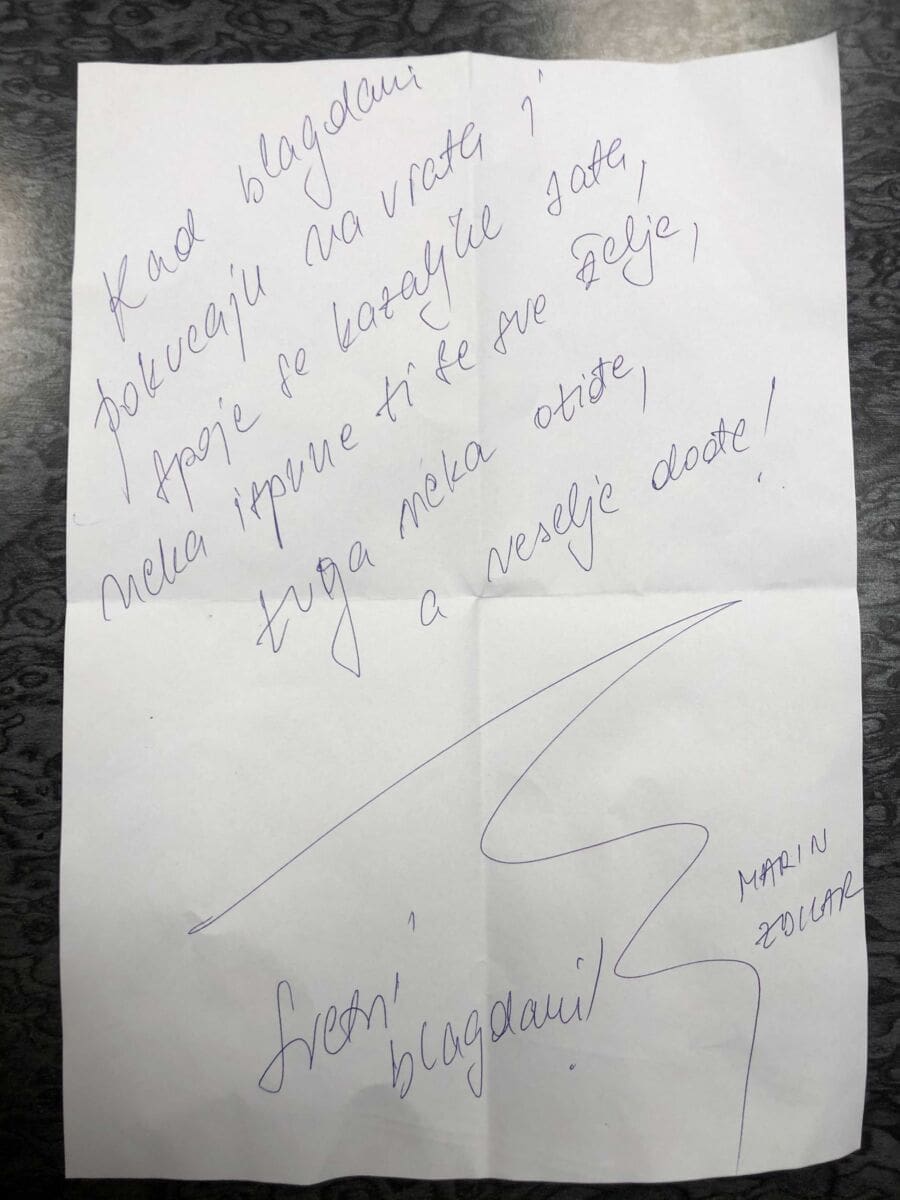 Kad blagdani
pokucaju na vrata i
spoje se kazaljke sata,
neka ispune ti se sve želje,
tuga neka otiđe,
a veselje dođe!
Sretni
blagdani!
MARIN
ZOLLAR